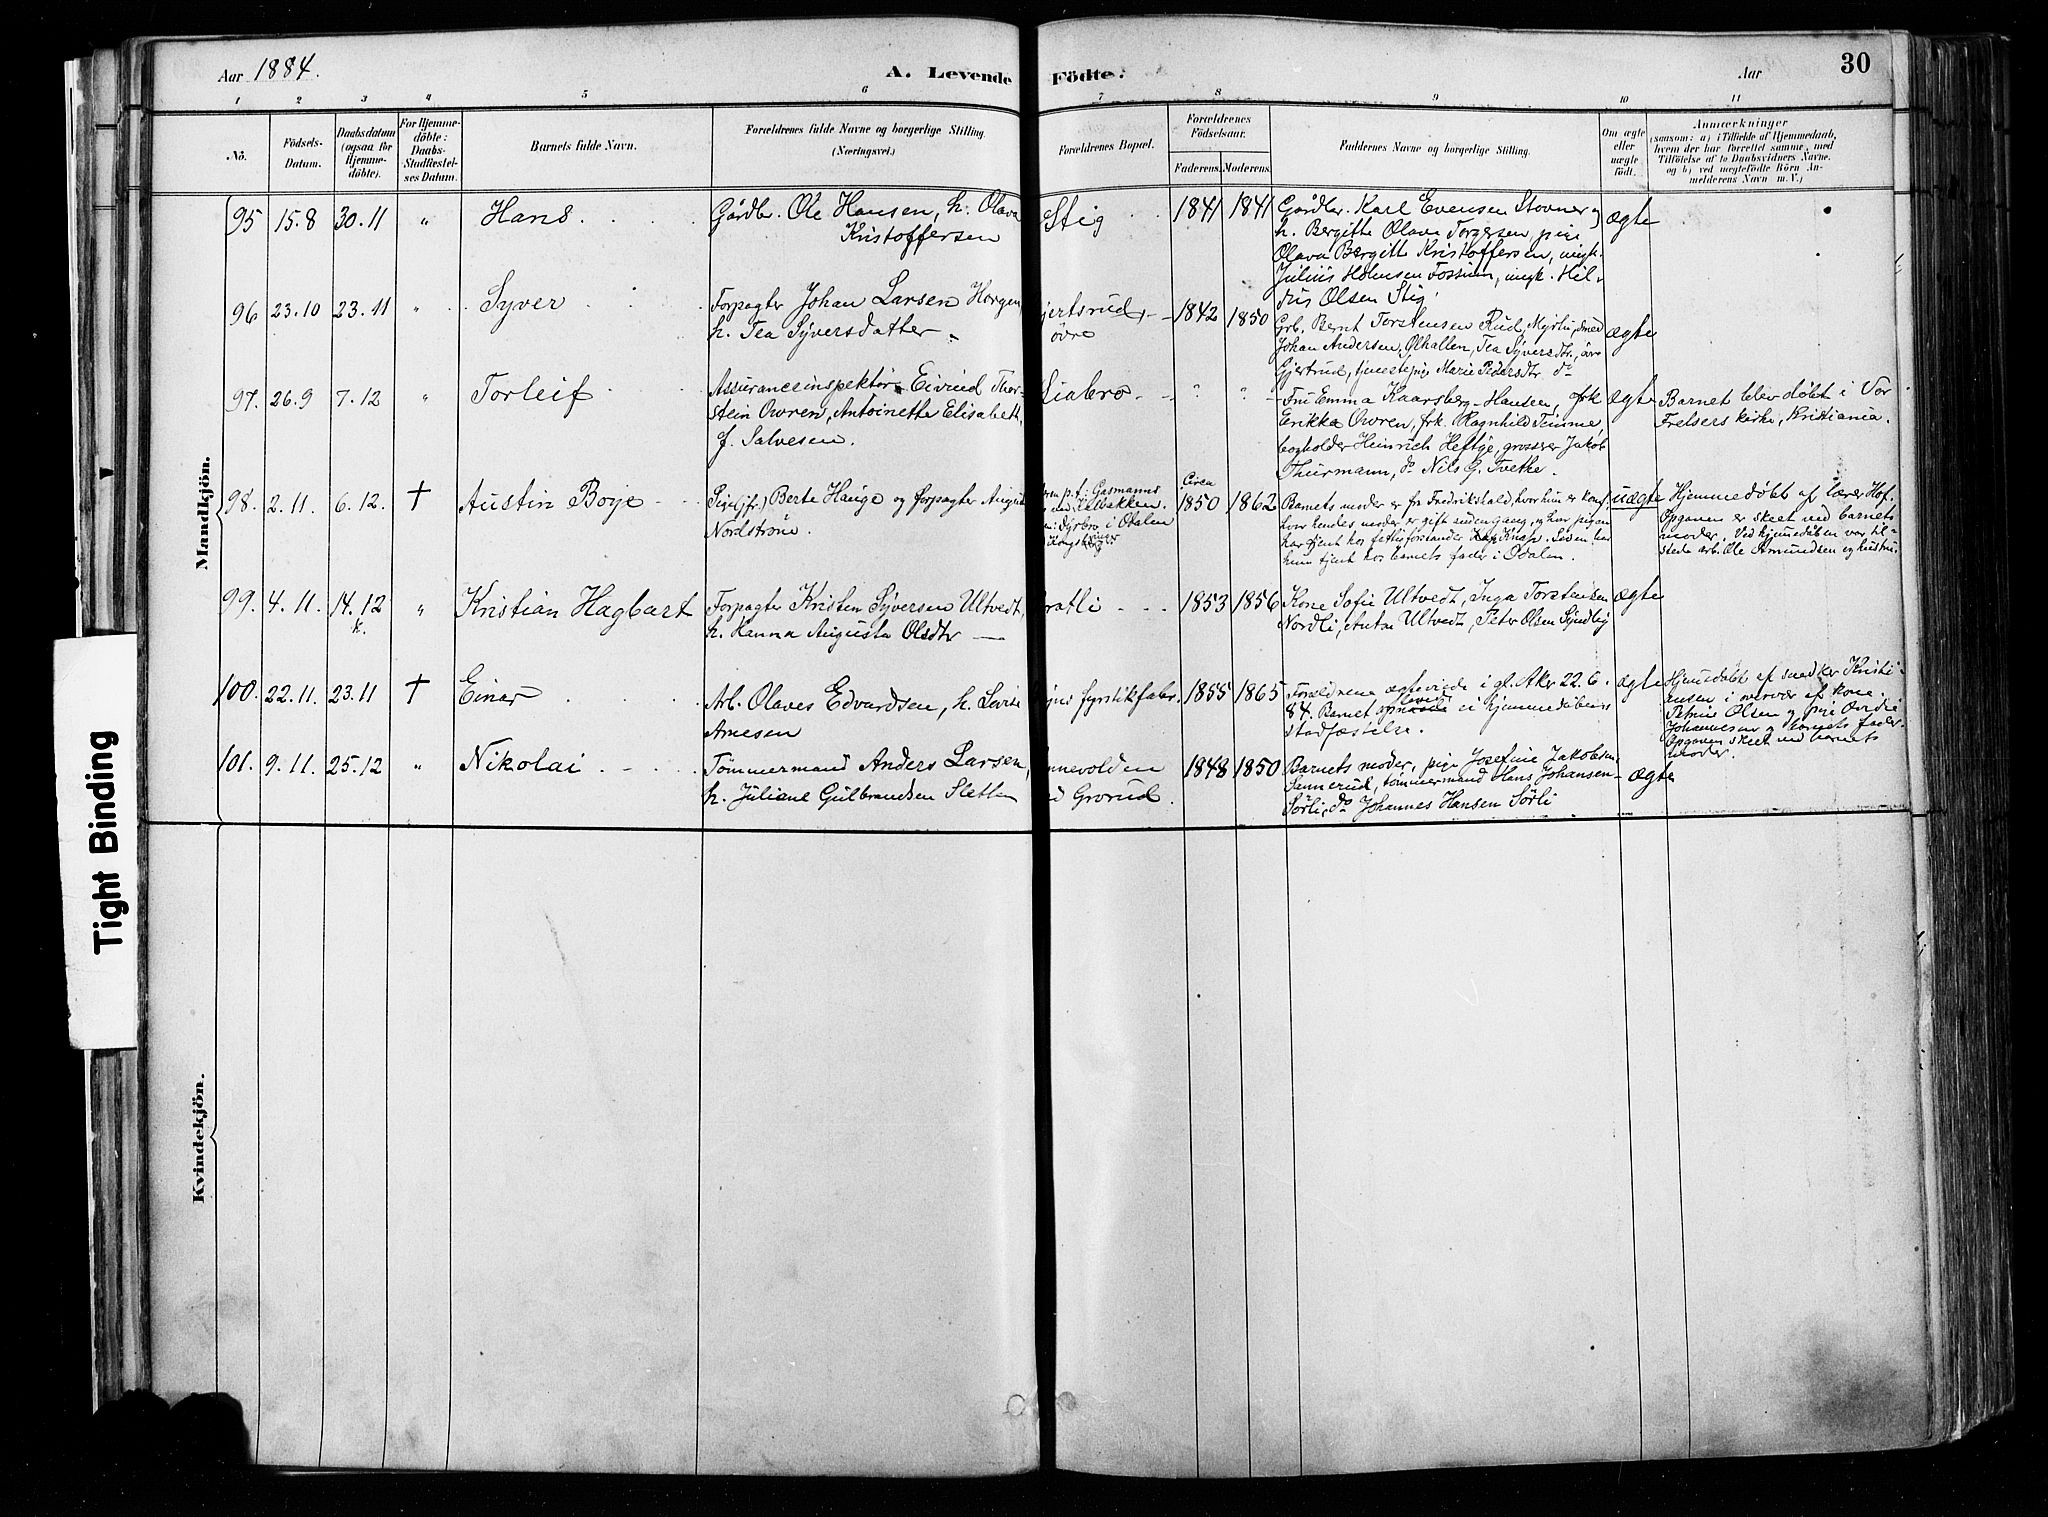 Aar 1884.
A. Levende Födte.
Aar
30
1 2 3 4 5 6 7 8 9 10 11
No.
Födsels-
Datum.
Daabsdatum
(ogsaa for
Hjemme-
döbte).
For Hjemme-
döbte:
Daabs-
Stadfæstel-
ses Datum.
Barnets fulde Navn.
Forældrenes fulde Navne og borgerlige Stilling
(Næringsvei.)
Forældrenes Bopæl.
Forældrenes
Födselsaar.
Faderens. Moderens.
Faddernes Navne og borgerlige Stilling.
Om ægte
eller
uægte
födt.
Anmærkninger
(saasom: a) i Tilfælde af Hjemmedaab,
hvem der har forrettet samme, med
Tilföielse af to Daabsvidners Navne.
og b) ved uægtefödte Börn An-
melderens Navn m. V.)
Mandkjön.
95 15.8 30.11 " Hans
Gårdbr. Ole Hansen, h. Olava
Kristoffersen
Stig
1841 1841
Gårdbr. Karl Evensen Stovner og
h. Bergitte Olava Torgersen, pige
Olava Bergitte Kristoffersen, ungk.
Julius Holmsen Fossum, ungk. Hil-
dus Olsen Stig.
ægte
96 23.10 23.11 " Syver
Forpagter Johan Larsen Horgen
h. Tea Syversdatter
jertsrud,
övre
1842 1850
Grb. Bernt Torstensen Rud,
Johan Andersen, Ølhallen, Tea Syversdtr., övre
Gjertrud, tjenestepig Marie Pedersdtr do
ægte
97. 26.9 7.12 " Torleif
Assuranceinspektør Eivind Thor-
stein Owren, Antoinette Elisabeth,
f. Salvesen.
Liabro
" "
Fru Emma Kaarsberg-Hansen, frk
Erikka Owren, frk. Ragnhild Temme,
bogholder Heinrich Heftye, grosserer Jakob
Thurmann, do Nils G. Tvethe.
ægte
Barnet blev döbt i Vor
Frelsers kirke, Kristiania.
98. 2.11. 6.12. † Austin Boye
Pige(jfr.) Berte Hauge og forpagter August
Nordström
p.t. Gasmanns
ved Kalbakken.
Dysbro i Odalen
Circa
1850 1862
Barnets moder er fra Fredrikshald, hvor hun er konf.
hvor hendes moder er gift anden gang, og hvor pigen
har tjent hos fattigforstander Knap. Siden har
hun tjent hos barnets fader i Odalen.
uægte
Hjemmedöbt af lærer Hof.
Opgaven er skeet ved barnets
moder. Ved hjemmedåben var til-
stede arb. Ole Amundsen og hustru.
99. 4.11. 14.12 " Kristian Hagbart
k.
Forpagter Kristen Syversen Ultvedt,
h. Hanna Augusta Olsdtr
ratli
1853 1856
Kone Sofie Ultvedt, Inga Torstensen
Nordli, Anton Ultvedt, Peter Olsen
ægte
100. 22.11. 23.11 † Einar
Arb. Olaves Edvardsen, h. Lovise
Arnesen
fyrstikfabr.
1855 1865
Forældrene ægteviede i gl. Aker 22.6.
84. Barnet levede ei hjemmedåbens
stadfæstelse.
ægte
Hjemmedöbt af snedker Kristi-
ansen i nærvær af kone
Petrine Olsen og pige
Johannesen og barnets fader.
Opgaven skeet ved barnets
moder.
101. 9.11. 25.12 " Nikolai
Tömmermand Anders Larsen,
h. Juliane Gulbrandsen Sletten
nnevolden
d Grorud.
1848 1850
Barnets moder, pige Josefine Jakobsen
Sannerud, tömmermand Hans Johansen
Sörli, do Johannes Hansen Sörli
ægte
Kvindekjön.
Tight Binding